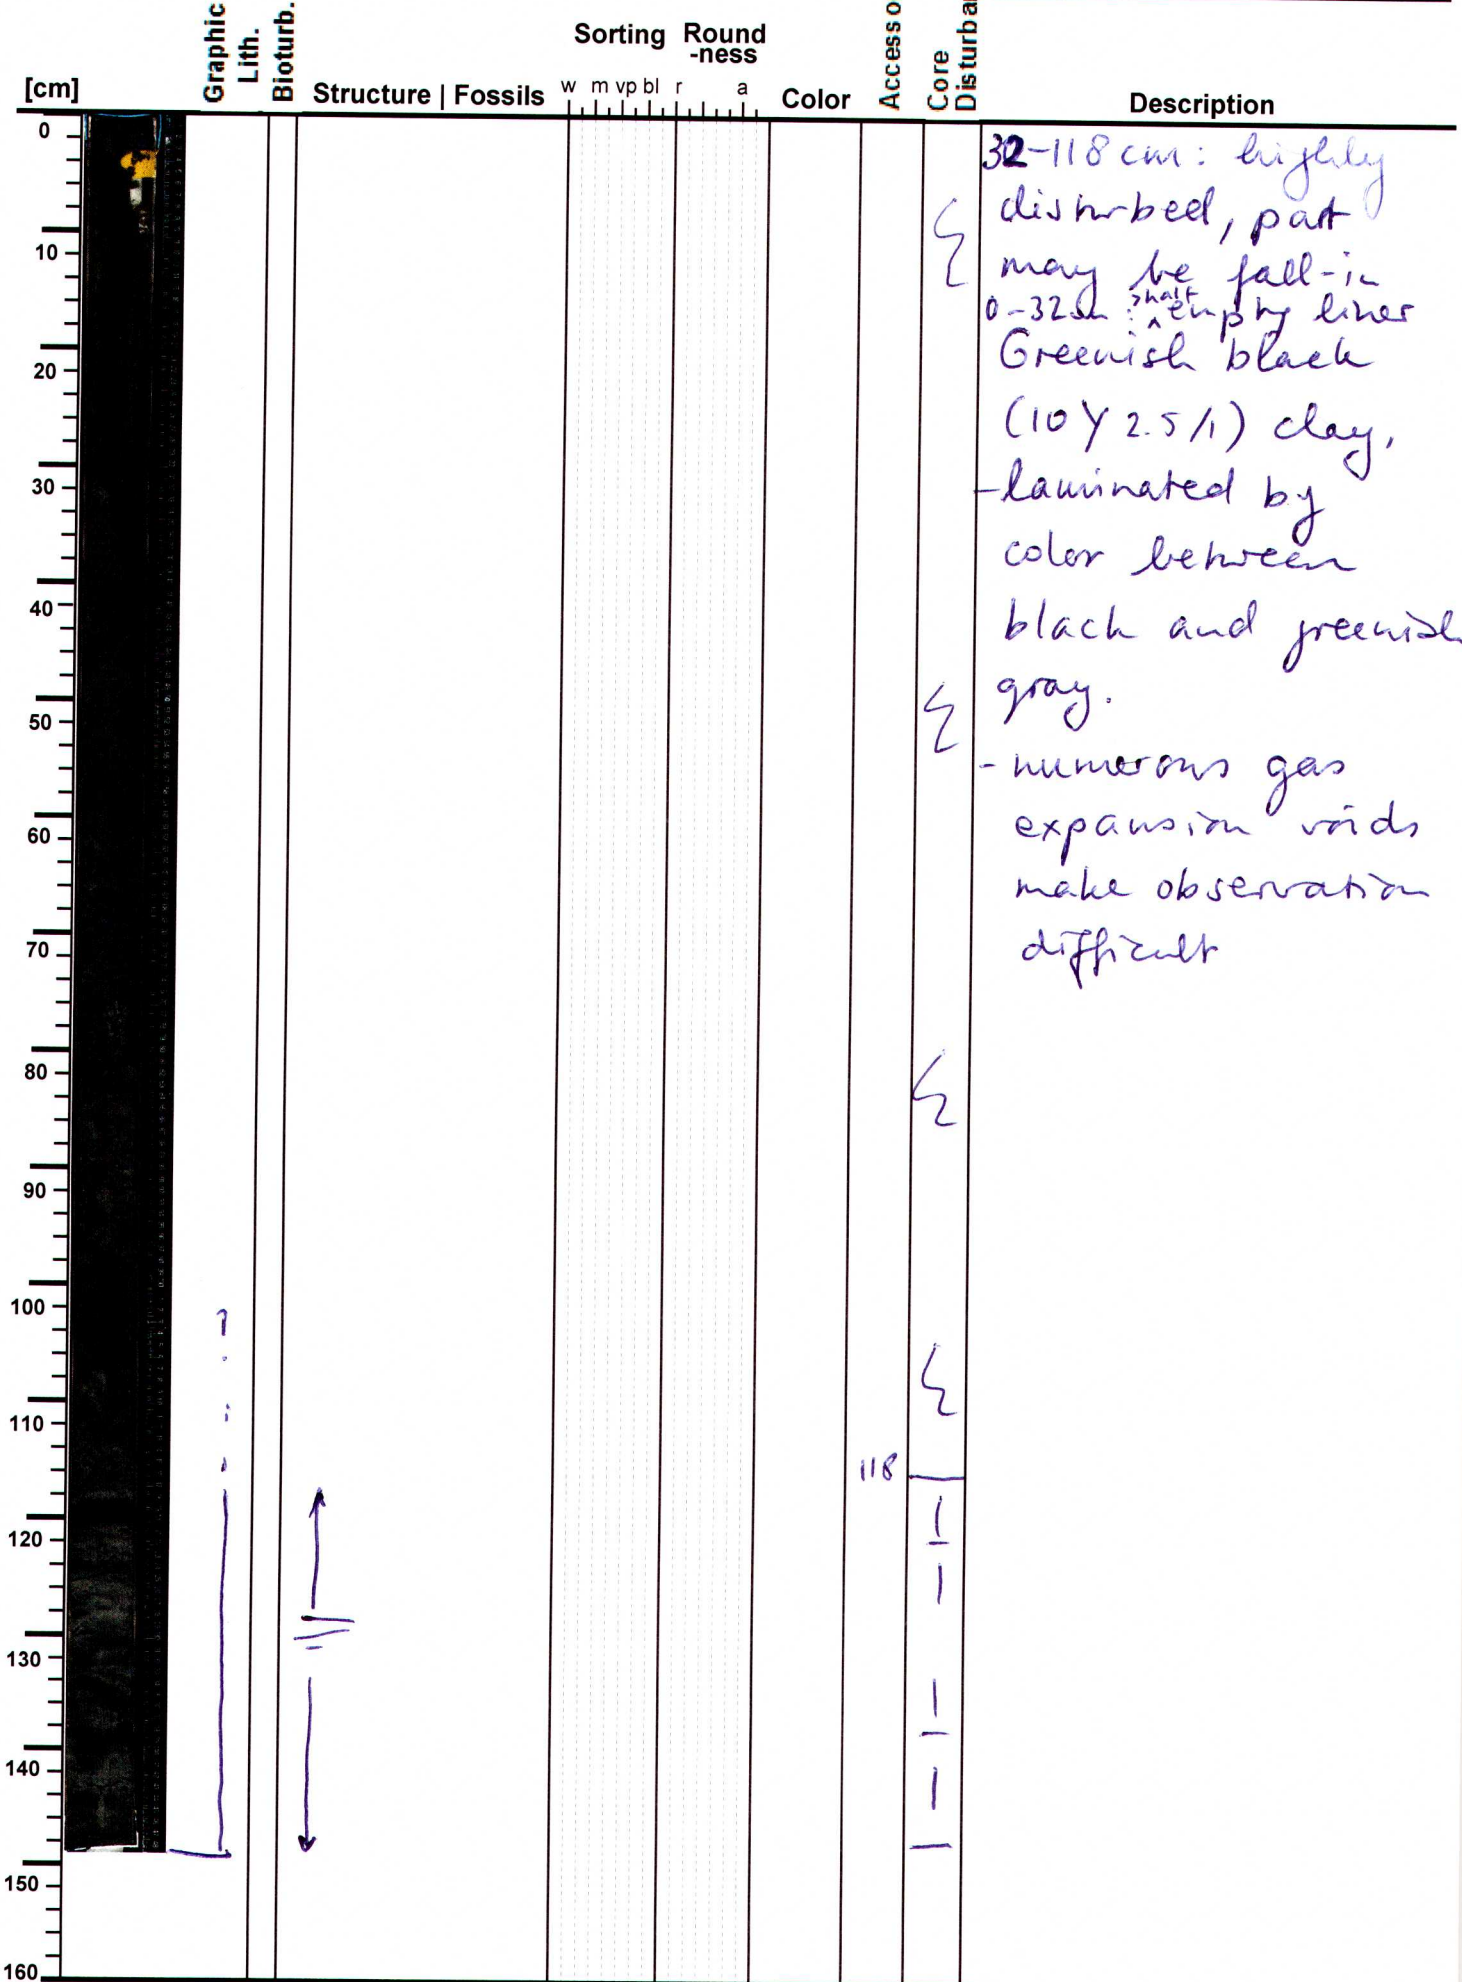 Graphic
Lith.
Bioturb.
Sorting Round
-ness
Core
Disturba
[cm] Structure | Fossils w m vp bl r a Color Accesso Description
0
10
20
30
40
50
60
70
80
90
100
110
120
130
140
150
160
118
32-118 cm: highly
disturbed, part
may be fall-in
0-32cm: half
empty liner
Greenish black
(10Y 2.5/1) clay,
-laminated by
color between
black and greenish
gray.
- numerous gas
expansion voids
make observation
difficult